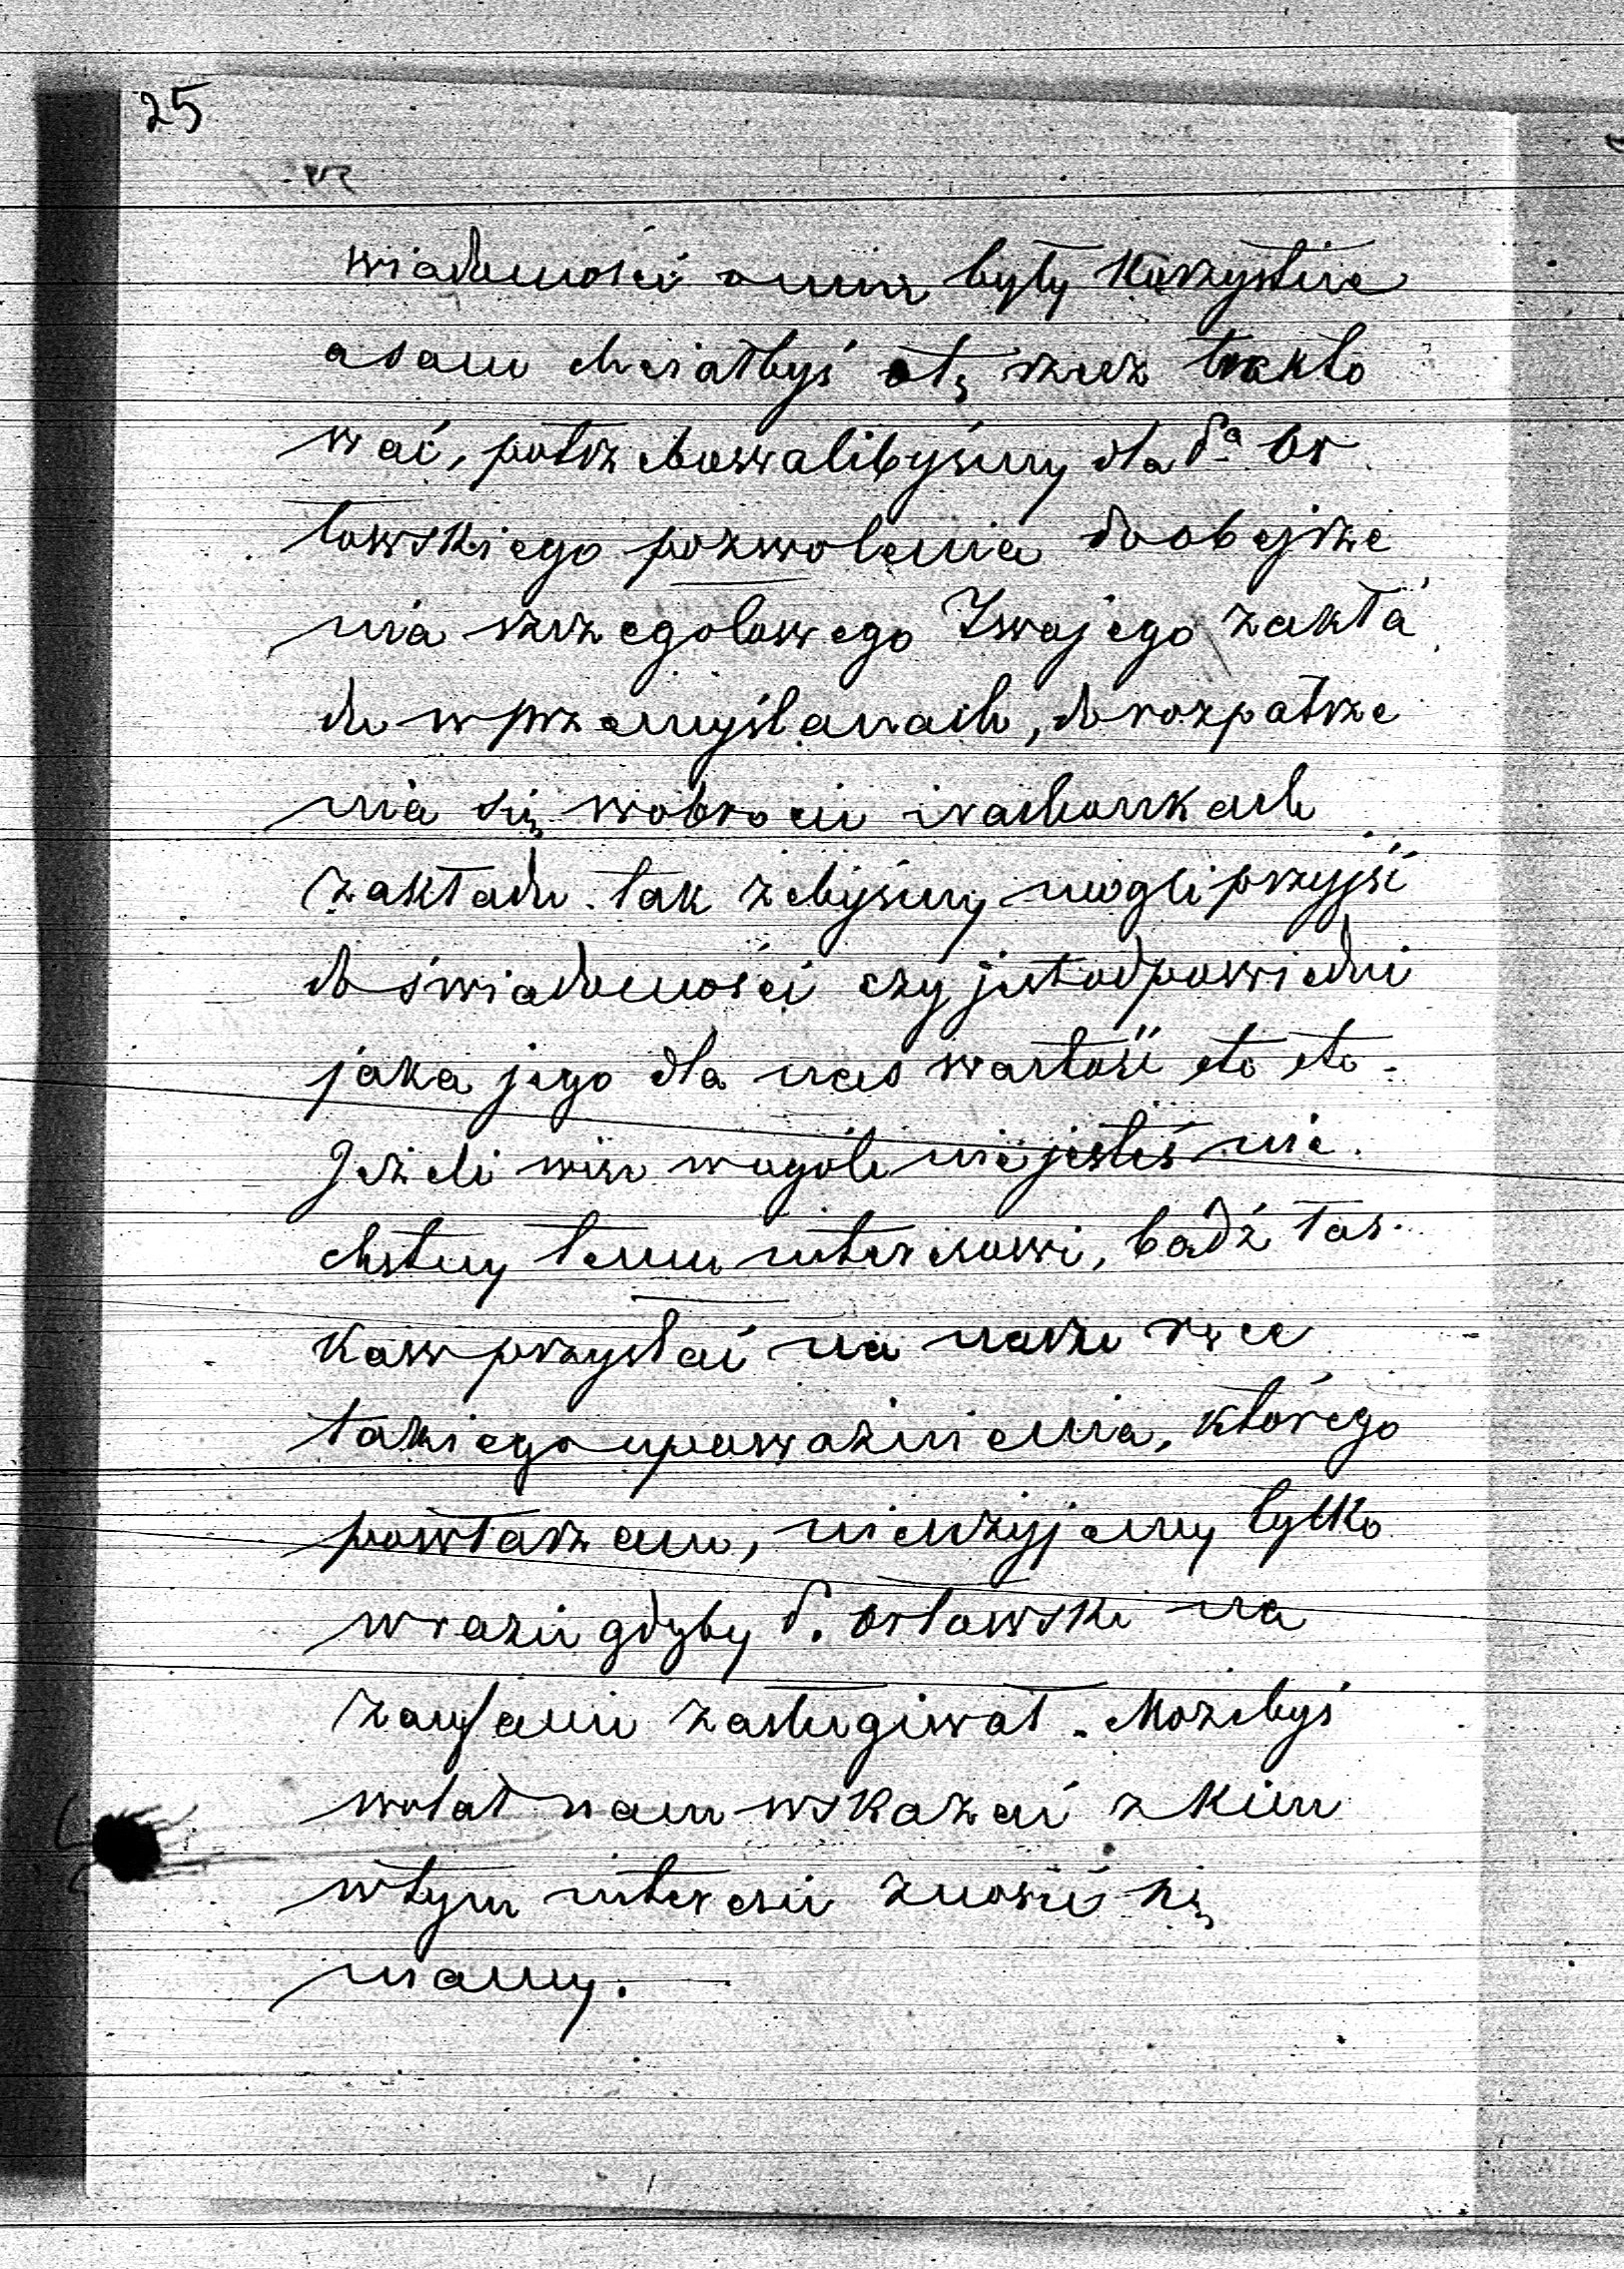 25
wiadomości o nim były korzystne
a sam chciałbyś o tę rzecz trakto
wać, potrzebowalibyśmy dla Pa Or
łowskiego pozwolenia do obejrze
nia szczegolowego Twojego zakła
du w przemyślanach, do rozpatrze
nia się w obrocie i rachunkach
zakładu. tak żebyśmy mogli przyjść
do świadomości czy jest odpowiedni
jaka jego dla nas wartość etc etc.
Jeżeli więc wogóle nie jesteś nie
chętny temu interesowi, bądź łas
kaw przysłać na nasze ręce
takiego upoważnienia, którego
powtarzam, nie użyjemy tylko
w razie gdyby P. Orłowski na
zaufanie zasługiwał. Możebyś
wolał nam wskazać z kim
w tym interesie znosić się
mamy.